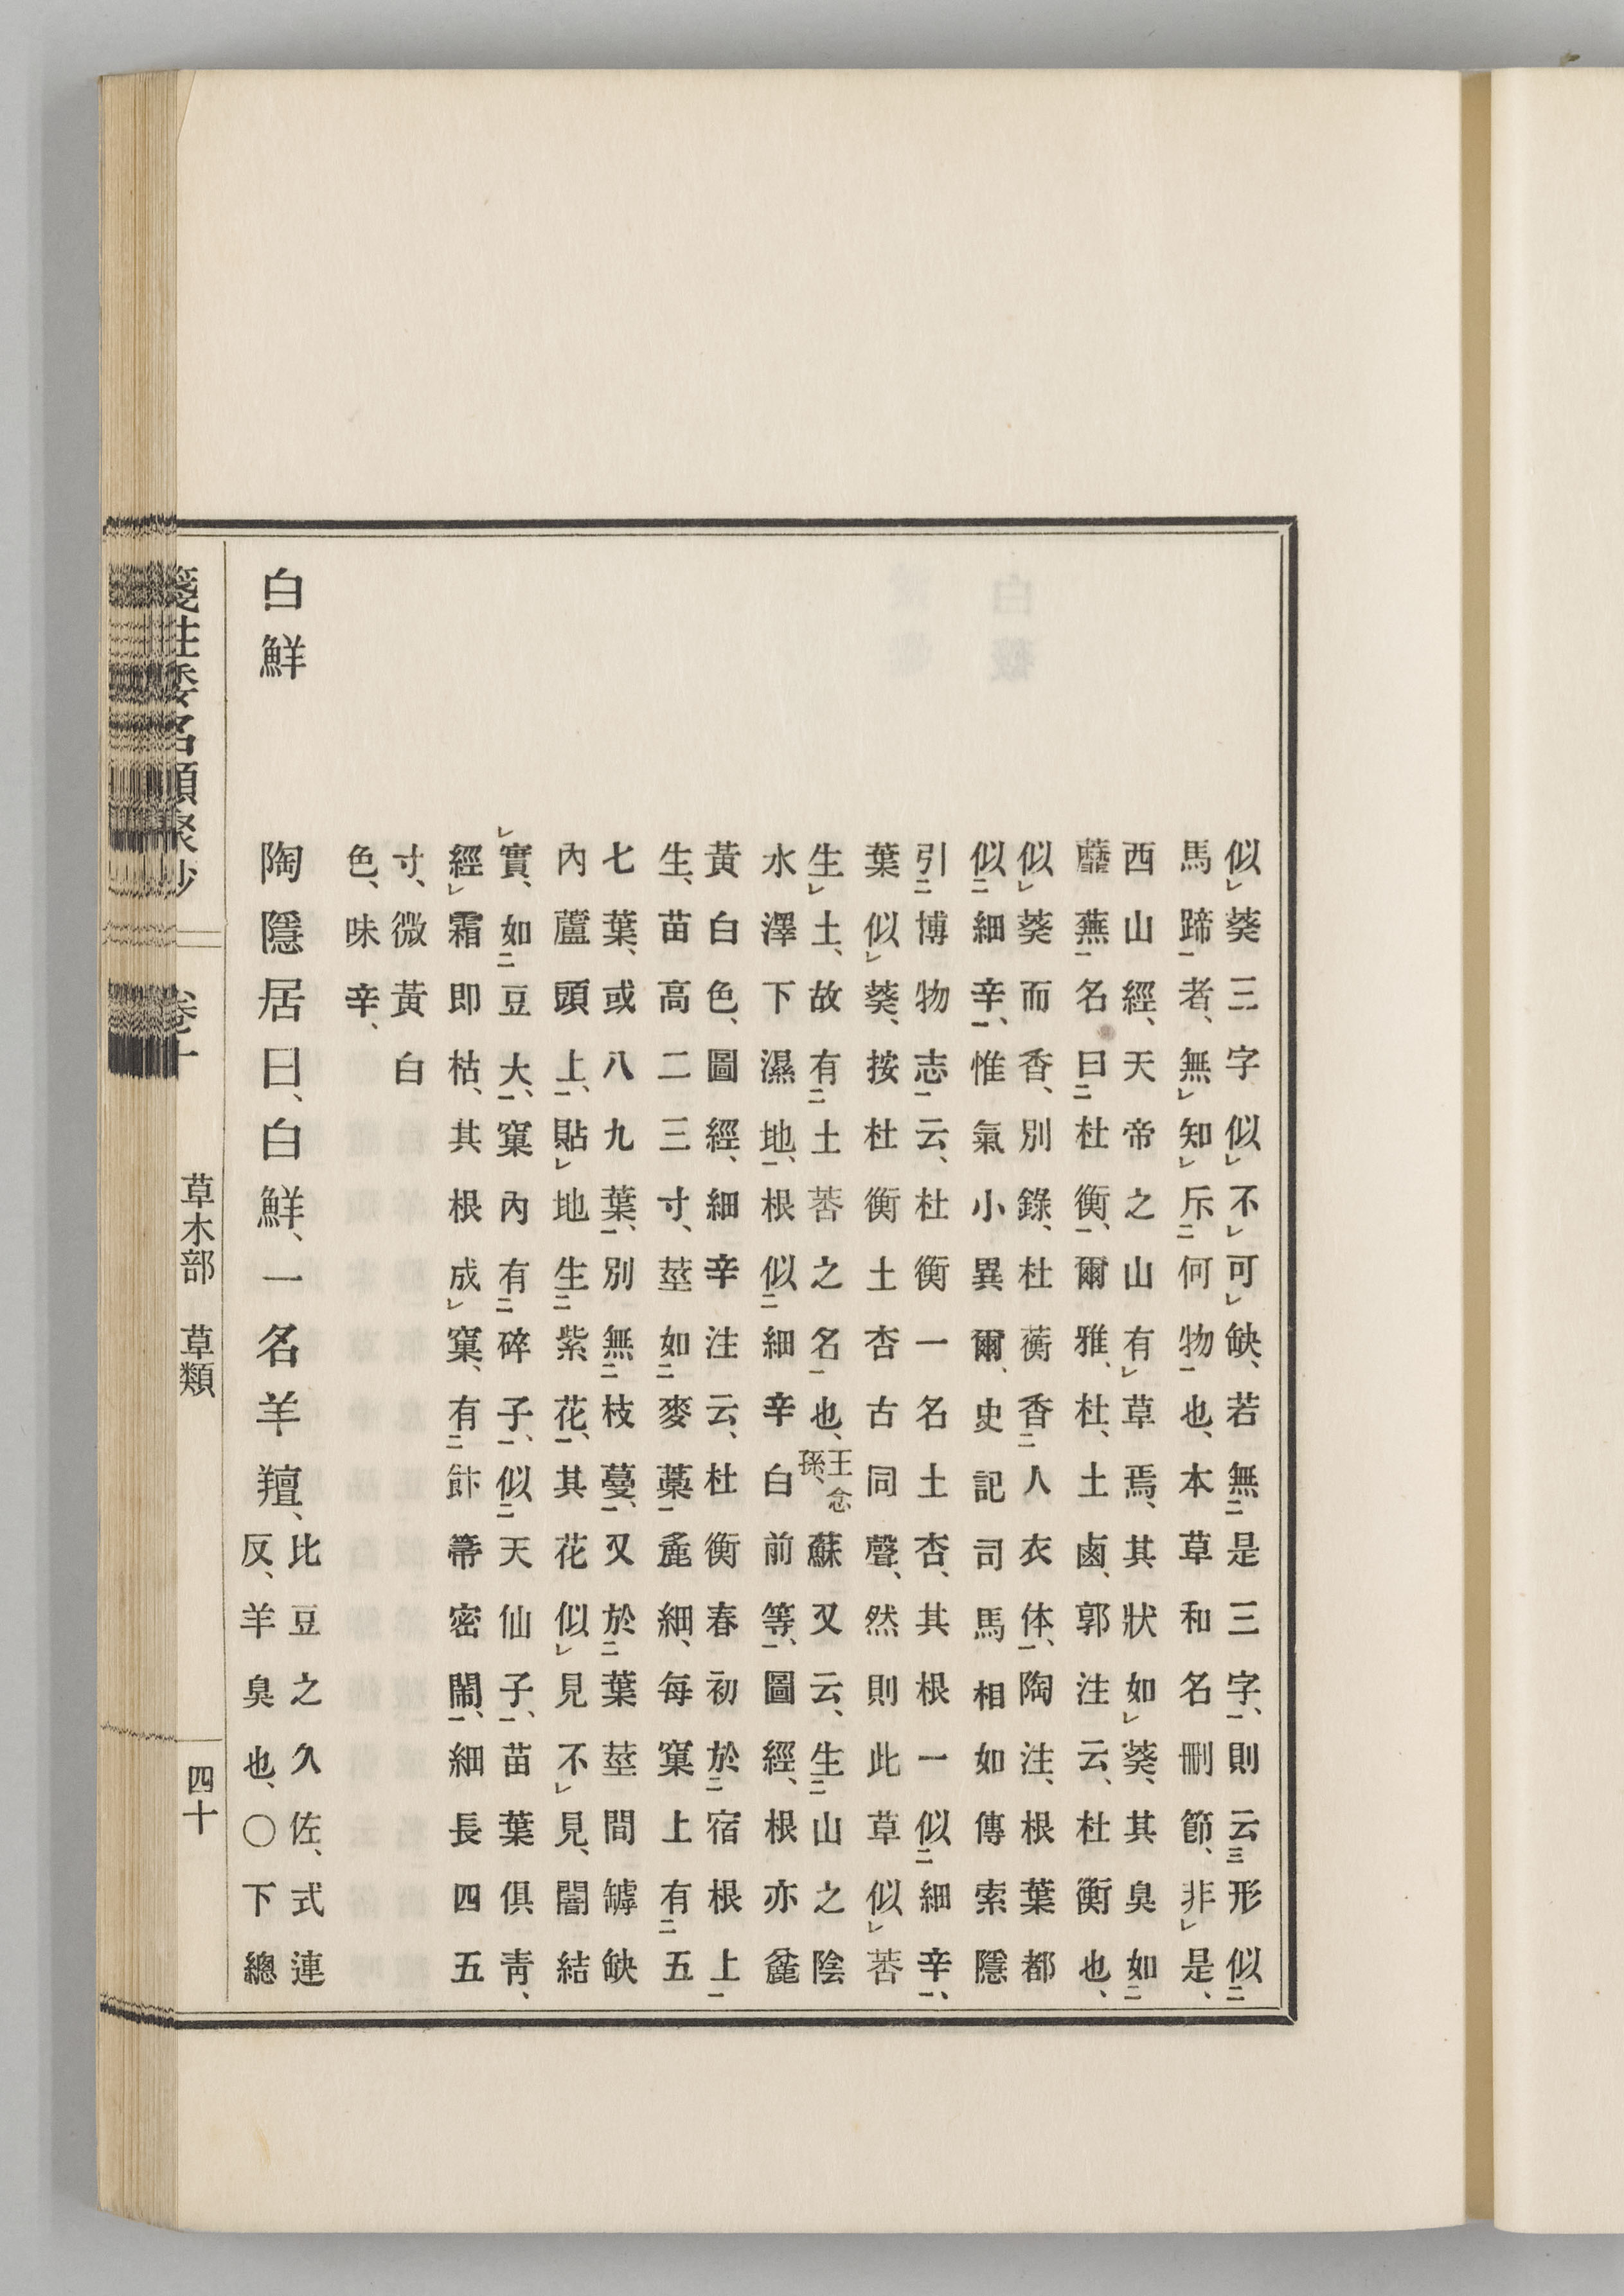 似葵三字似不可缺、若無是三字、則云形似
馬蹄者、無知斥何物也、本草和名刪節、非是、
西山經、天帝之山有草焉、其狀如葵、其臭如
蘼蕪名曰杜衡、爾雅、杜、土鹵、郭注云、杜衡也、
似葵而香、別錄、杜蘅香人衣体、陶注、根葉都
似細辛、惟氣小異爾、史記司馬相如傳索隱
引博物志云、杜衡一名土杏、其根一似細辛、
葉似葵、按杜衡土杏古同聲、然則此草似莕
生土、故有土莕之名也、王念孫、蘇又云、生山之陰
水澤下濕地、根似細辛白前等、圖經、根亦麄
黃白色、圖經、細辛注云、杜衡春初於宿根上
生、苗高二三寸、莖如麥藁麁細、每窠上有五
七葉、或八九葉、別無枝蔓、又於葉莖間罅缺
內蘆頭上、貼地生紫花、其花似見不見、闇結
實、如豆大、窠內有碎子、似天仙子、苗葉俱青、
經霜即枯、其根成窠、有飰箒密鬧、細長四五
寸、微黃白
色、味辛、
白鮮　陶隱居曰、白鮮、一名羊羶、比豆之久佐、式連反、羊臭也、〇下總
箋注倭名類聚抄　卷十　草木部　草類　四十